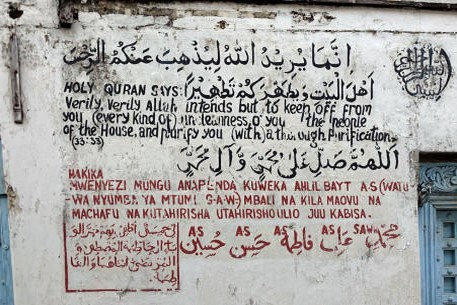 انما يريد الله ليذهب عنكم الرجس
اهل البيت ويطهركم تطهيرا
HOLY QURAN SAYS:
Verily, Verily Allah intends but to keep off from
you (every kind of) uncleanness, o you the people
of the House, and purify you (with) a thorough Purification
(33:33)
اللهم صل على محمد وآل محمد
HAKIKA
MWENYEZI MUNGU ANAPENDA KUWEKA AHLIL BAYT A.S (WATU
WA NYUMBA YA MTUMI S.A.W) MBALI NA KILA MAOVU NA
MACHAFU NA KUTAHIRISHA UTAHIRISHO ULIO JUU KABISA.
AS AS AS AS SAW
محمد علي فاطمة حسن حسين
لي خمسة اطفي بهم
المصطفى